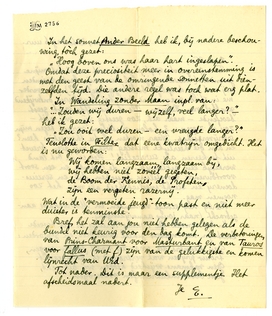 2756
In het sonnet Ander Beeld heb ik, bij nadere beschou-
wing, toch gezet:
"Hoog boven ons was haar hart ingeslapen".
Omdat deze preciositeit meer in overeenstemming is
met den geest van de omringende sonnetten uit
tijd. die andere regel was toch wat erg plat.
In Wandeling zonder Maan inpl. van:
"Zouden wij duren — wijzelf, veel langer? —"
heb ik gezet:
"Zou ooit wel duren — een vraagde langer?"
Tenslotte in heb dat een kwatrijn omgedicht. Het
is nu geworden:
Wij komen langzaam, langzaam bij,
wij hebben niet zoveel gegeten,
de Boom der Kennis, de Profeten
zijn een vergeten razernij.
Wat in de "vermoeide jeugd"-toon past en niet meer
duister is tenminste.
Bref, het zal aan jou niet hebben gelegen als de
bundel niet keurig voor den dag komt. De verbeteringen
van Prins-Charmant voor Masturbant en van Taurus
voor Zallus (met !) zijn van de gelukkigste en komen
lijnrecht van
Tot nader, dit is maar een supplementje. Het
afscheidsmaal nadert.
Je E.